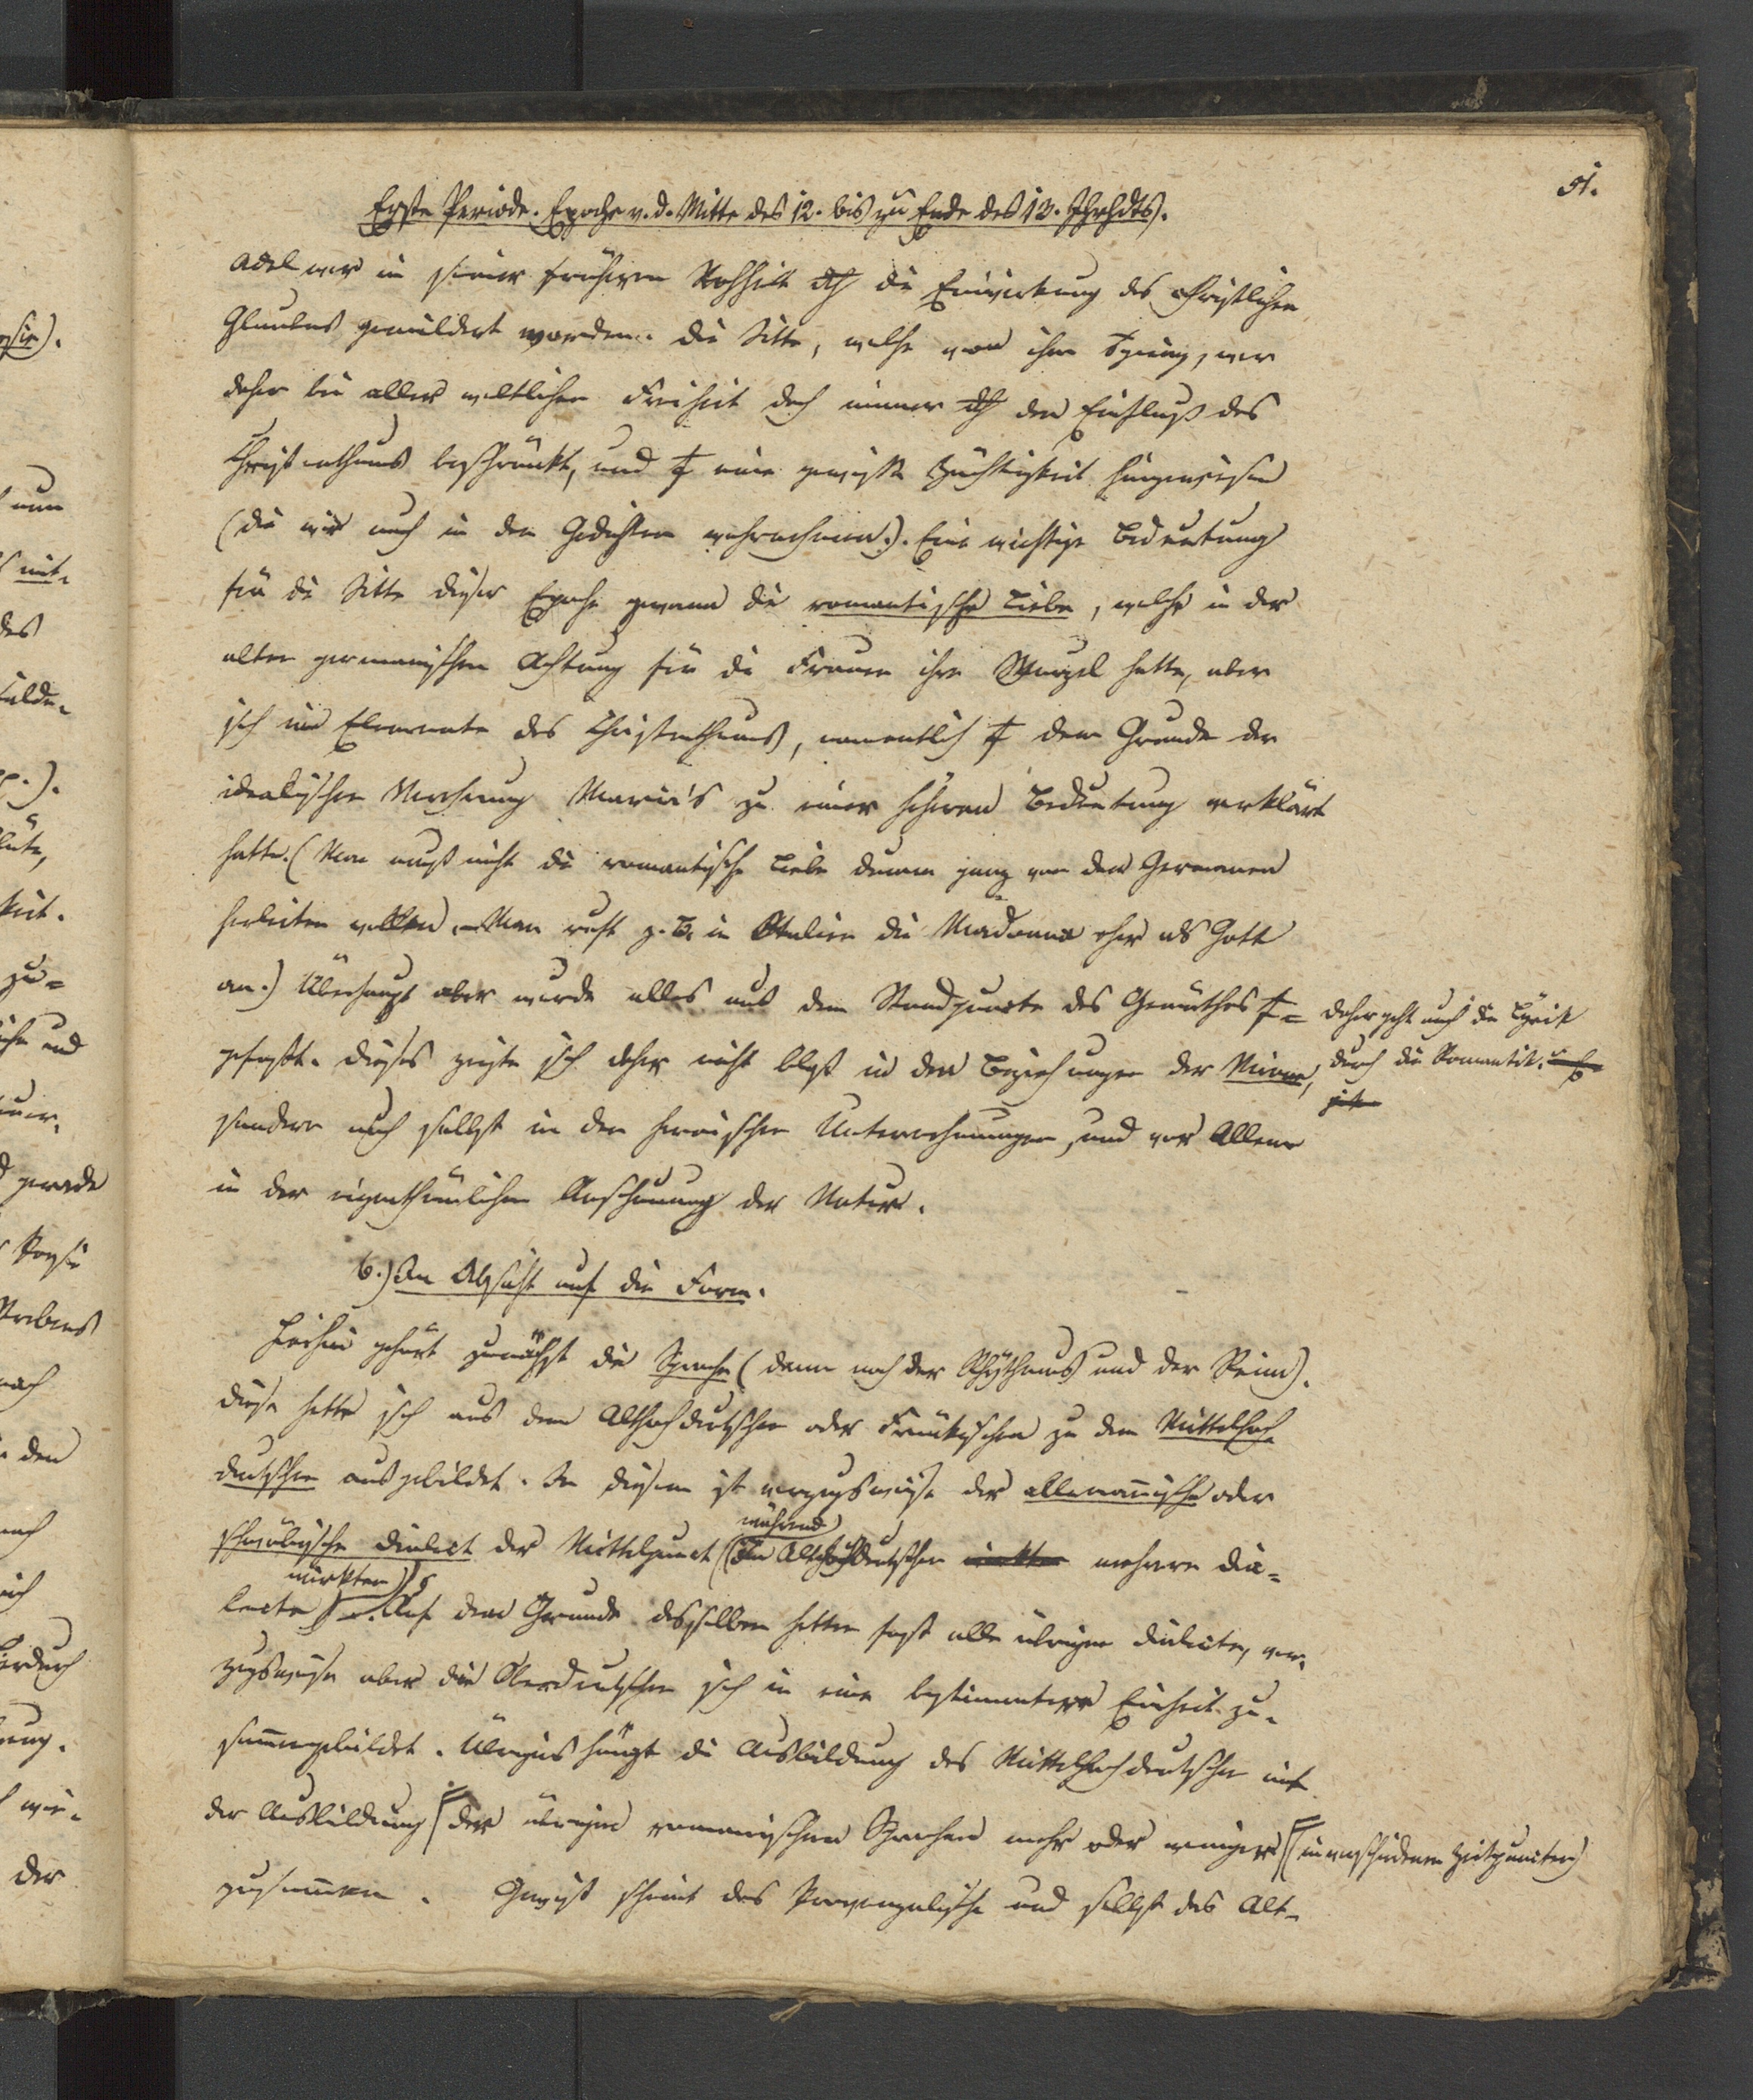 51.
Erste Periode. Epoche v. d. Mitte des 12. bis zu Ende des 13. Jhrhdts.
Adel war in seiner früheren Rohheit dch die Einwirkung des christlichen
Glaubens gemildert worden. Die Sitte, welche von ihm ging, war
daher bei aller weltlichen Freiheit doch immer dch den Einfluß des
Christenthums beschränkt, und eine gewisse Züchtigkeit hingewiesen
(die wir auch in den Gedichten wahrnehmen.). Eine wichtige Bedeutung
für die Sitte dieser Epoche gewann die romantische Liebe, welche in der
alten germanischen Achtung für die Frauen ihre Wurzel hatte, aber
sich im Elemente des Christenthums, namentlich dem Grunde der
idealischen Verehrung Maria's zu einer höheren Bedeutung verklärt
hatte. (Man muß nicht die romantische Liebe darum ganz von den Germanen
herleiten wollen. Man ruft z. B. in Italien die Madonna eher als Gott
an.) Überhaupt aber wurde alles aus dem Standpuncte des Gemüthes
gefaßt. Dieses zeigte sich daher nicht bloß in den Beziehungen der Minne,
sondern auch selbst in den heroischen Unternehmungen, und vor Allem
in der eigenthümlichen Anschauung der Natur.
daher geht auch die Lyrik
durch die Romantik.
b.) In Absicht auf die Form.
Hierhin gehört zunächst die Sprache (dann noch der Rhythmus und der Reim).
Diese hatte sich aus dem Althochdeutschen oder Fränkischen zu dem Mittelhoch
deutschen ausgebildet. In diesem ist vorzugsweise der allemannische oder
schwäbische Dialect der Mittelpunct (während Im Althochdeutschen mehrere Dia-
lecte wirkten). Auf dem Grunde desselben hatten fast alle übrigen Dialecte, vor-
zugsweise aber die Oberdeutschen sich in eine bestimmtere Einheit zu-
sammengebildet. Übrigens hängt die Ausbildung des Mittelhochdeutschen mit
der Ausbildung der übrigen romanischen Sprachen mehr oder weniger (in verschiedenen Zeitpuncten)
zusammen. Gewiß scheint das Provenzalische und selbst das Alt-